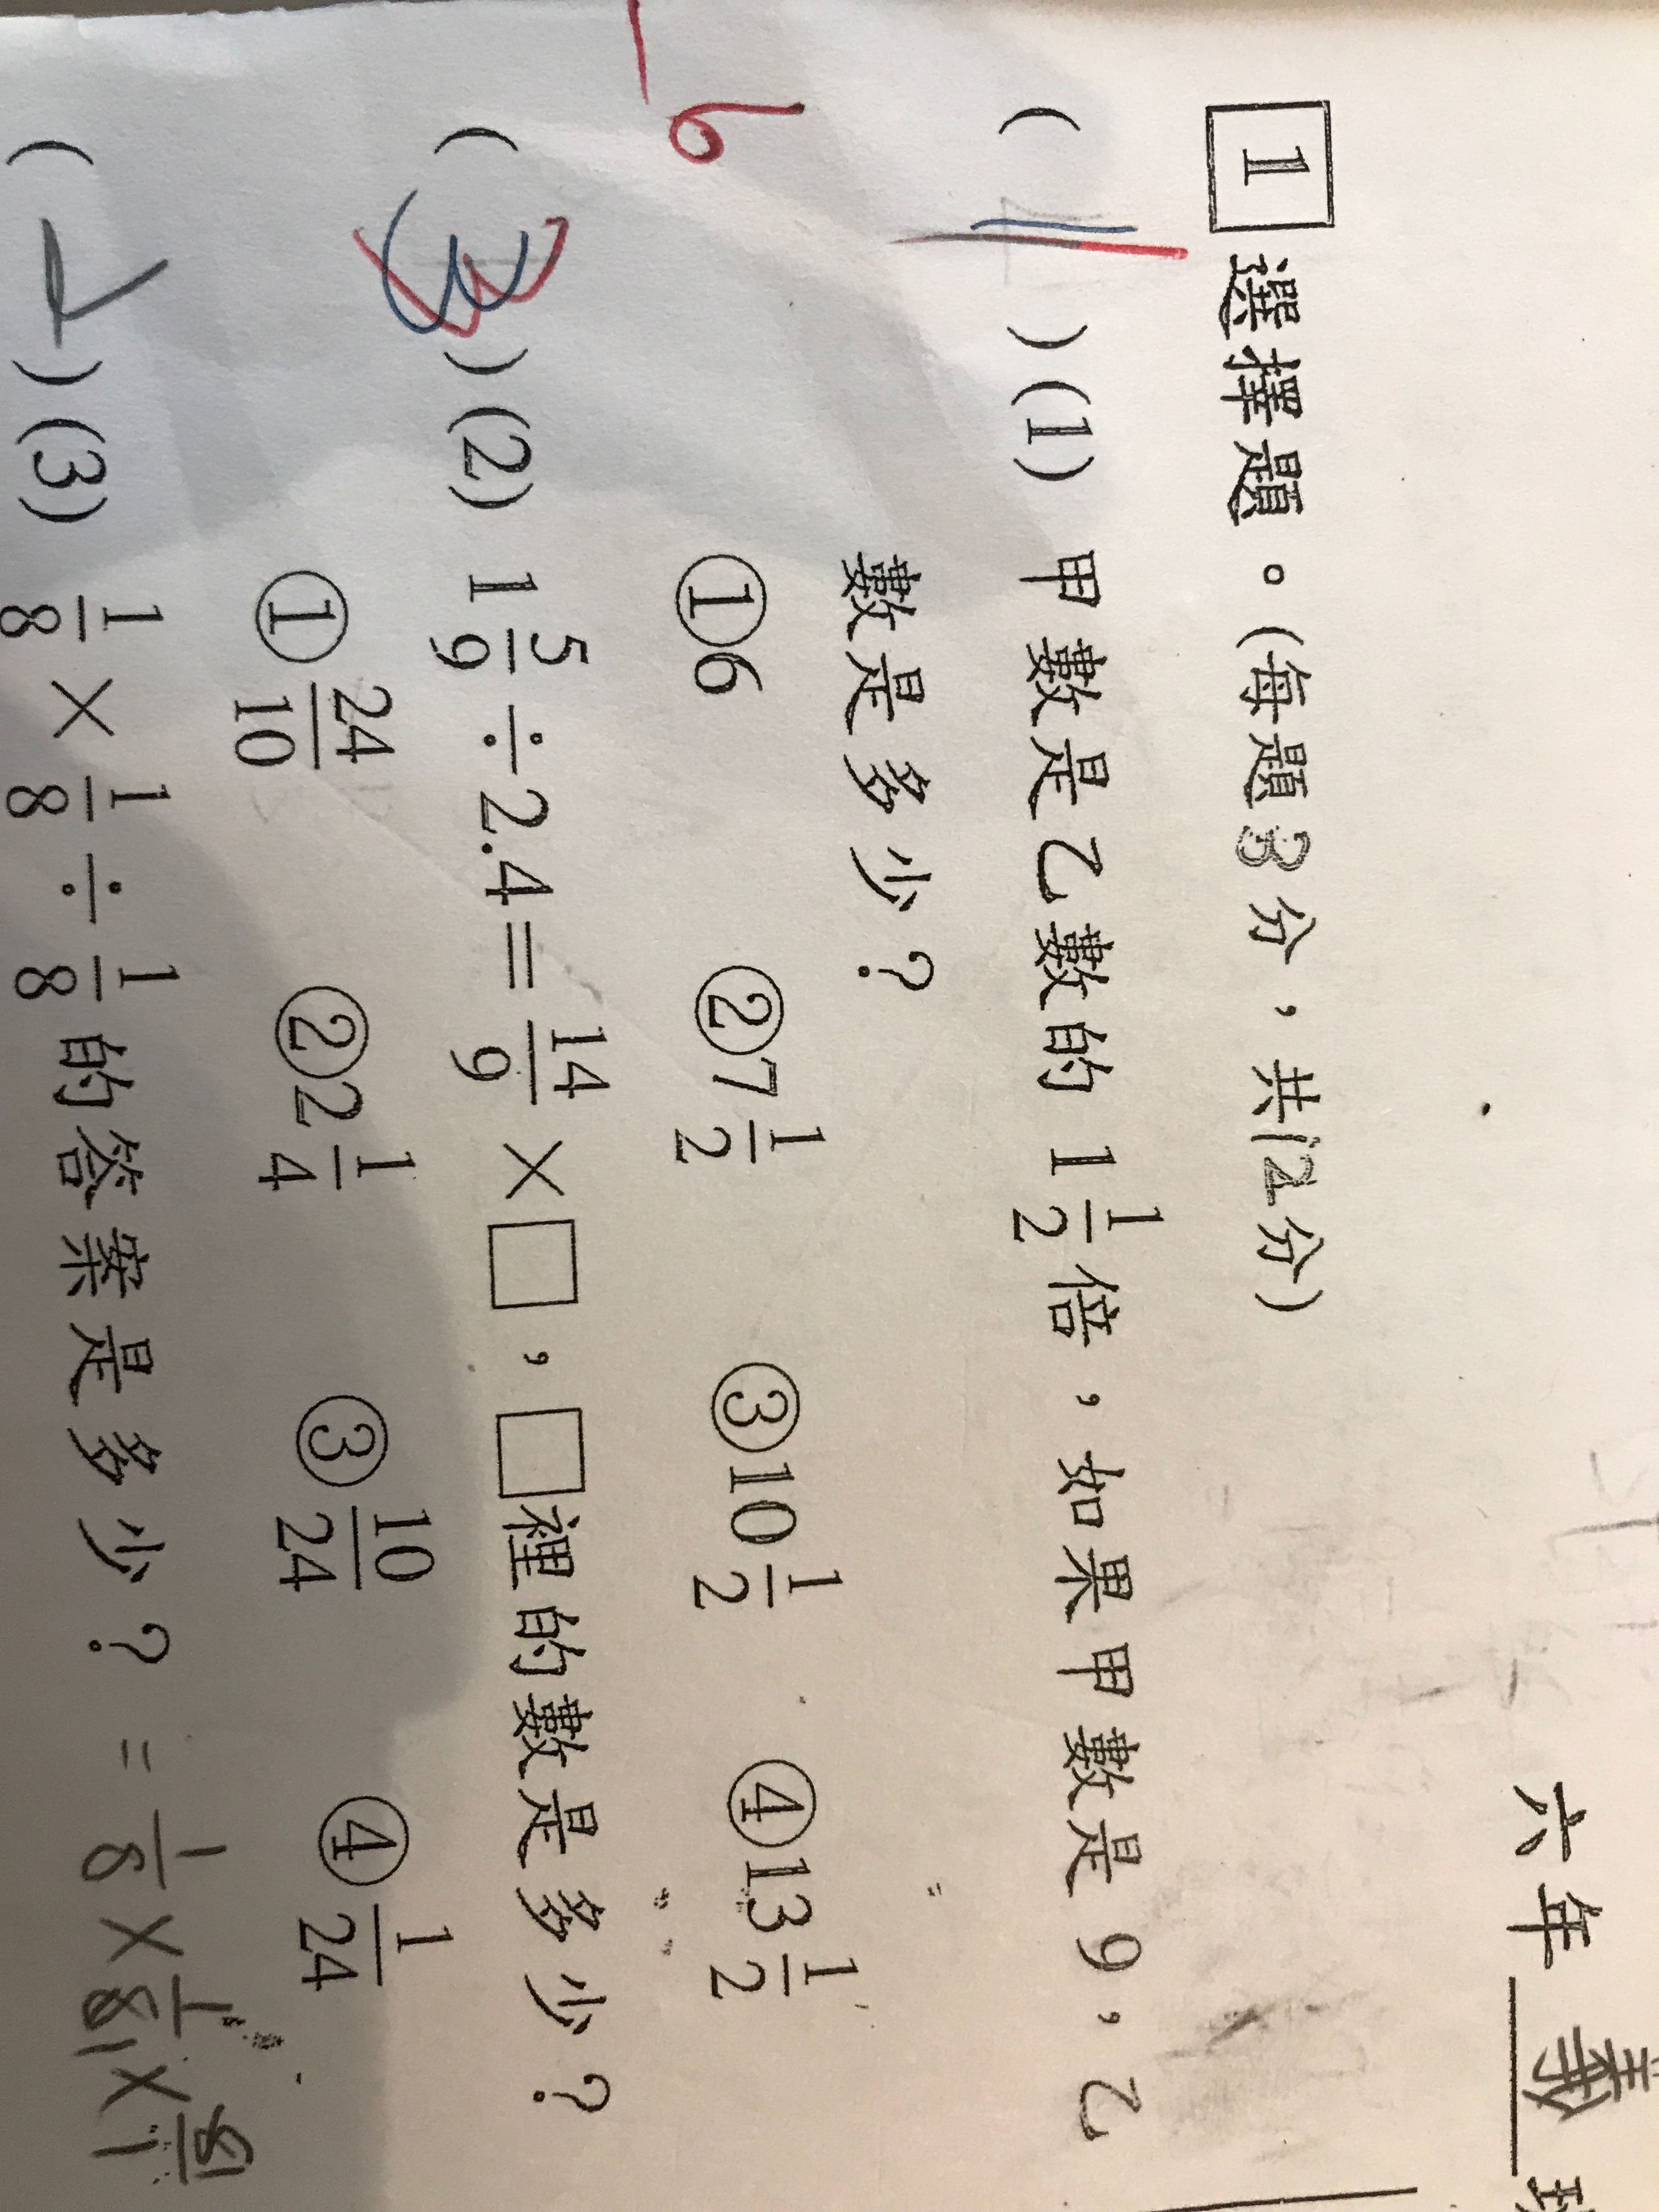 六年 班
1 選擇題。(每題3分,共12分)
( 1 )(1) 甲數是乙數的 1 1/2 倍,如果甲數是 9,乙
數是多少?
-6
①6 ②7 1/2 ③10 1/2 ④13 1/2
( 3 )(2) 1 5/9 ÷ 2.4 = 14/9 × □,□裡的數是多少?
① 24/10 ②2 1/4 ③ 10/24 ④ 1/24
( )(3) 1/8 × 1/8 ÷ 1/8 的答案是多少? = 1/8 × 1/8 × 8/1